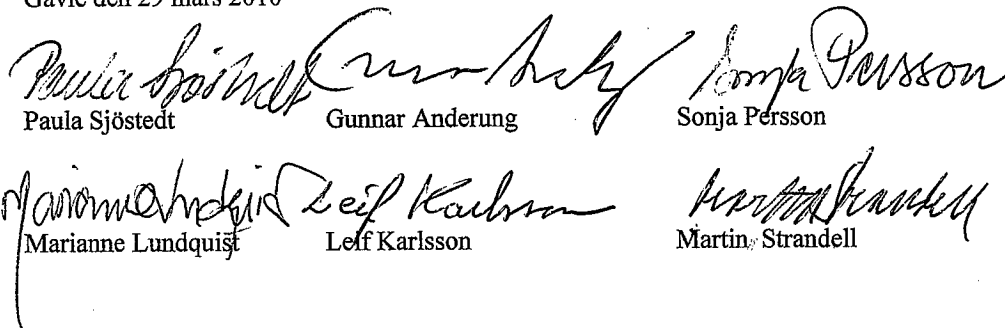 Gävle den 29 mars 2010
Paula Sjöstedt Sonja Persson
Paula Sjöstedt Gunnar Anderung Sonja Persson
Marianne Lundquist Leif Karlsson Martin Strandell
Marianne Lundquist Leif Karlsson Martin Strandell